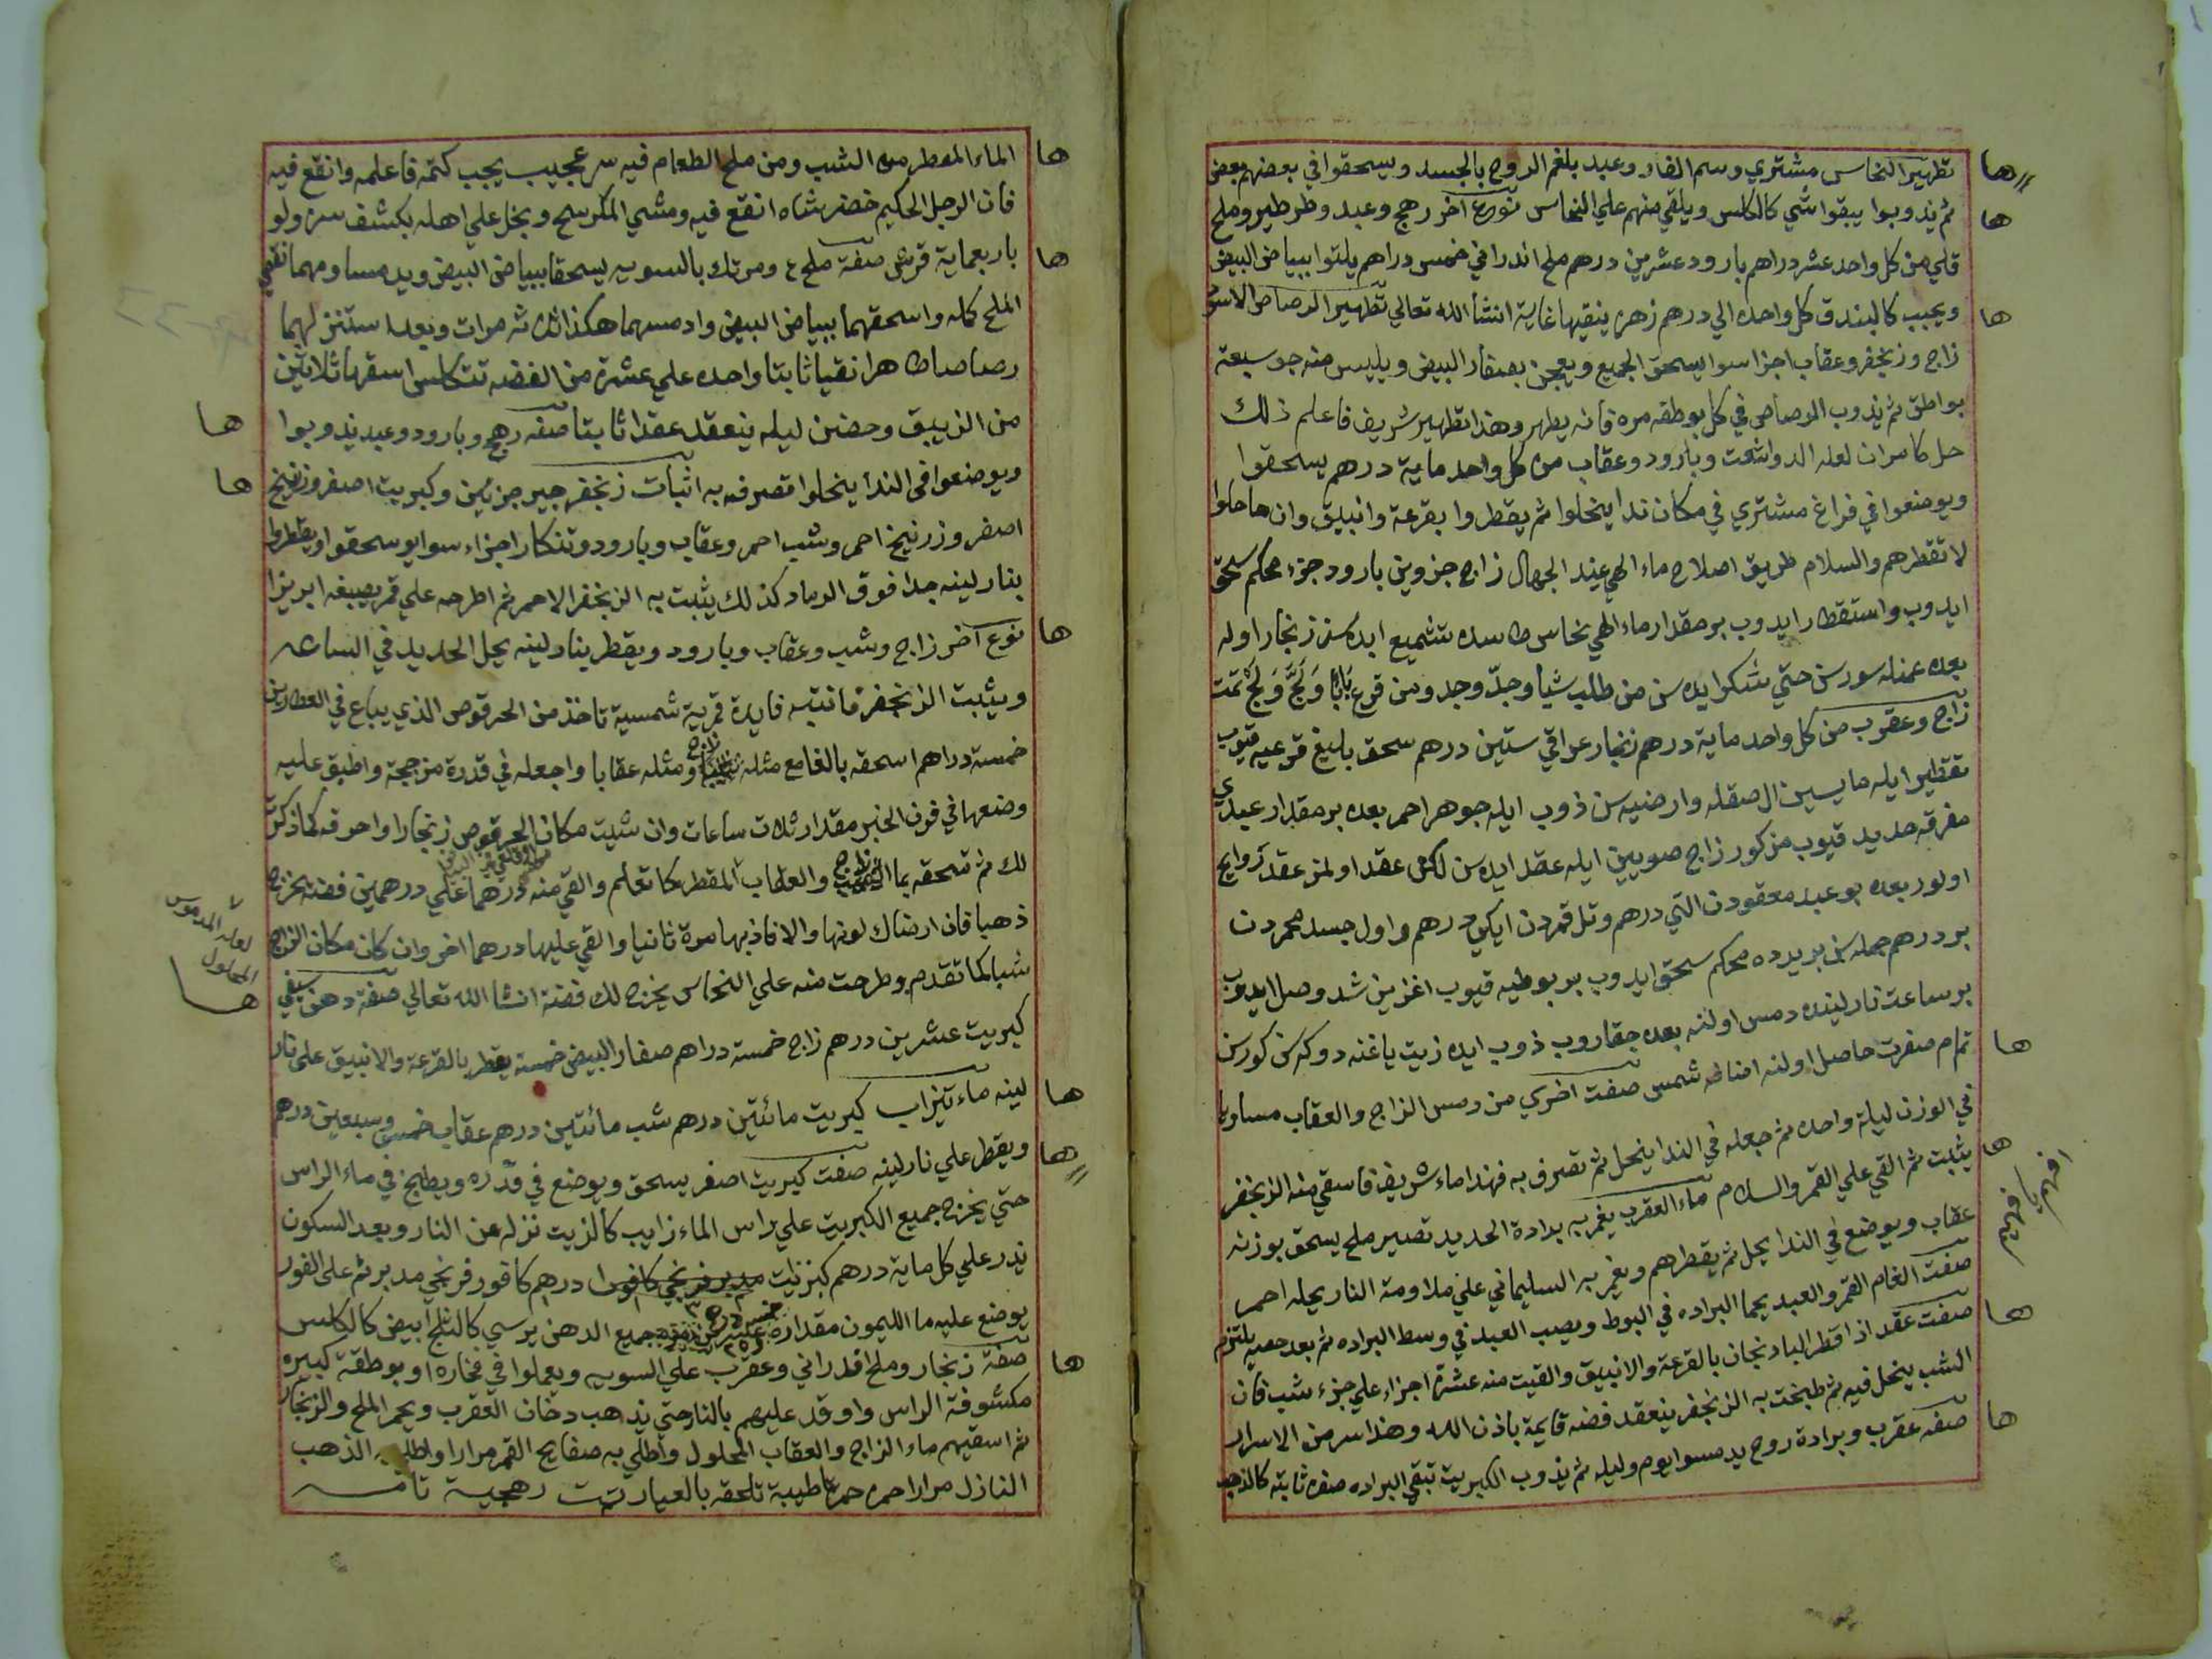 تطهير النحاس مشتري وسم الفار وعبد يلغم الروح بالجسد ويسحقوا في بعضهم بعض
ثم يذوبوا يبقوا شي كالكلس ويلقي منهم علي النحاس نوع آخر رهج وعبد وطرطير وملح
قلي من كل واحد عشر دراهم بارود عشرين درهم ملح اندراني خمس دراهم يلتوا ببياض البيض
ويحبب كالبندق كل واحده الي درهم زهره ينقيها غاية انشأ الله تعالي تطهير الرصاص الاسود
زاج وزنجفر وعقاب اجزا سوا يسحق الجميع ويعجن بصفار البيض ويلبس منه جو سبعة
بواطق ثم يذوب الرصاص في كل بوطقه مره فانه يطهر وهذا تطهير شريف فاعلم ذلك
حل كاسران لعله الدواشعت وبارود وعقاب من كل واحد ماية درهم يسحقوا
ويوضعوا في فراغ مشتري في مكان ندا ينحلوا ثم يقطروا بقرعة وانبيق وان هما حلوا
لا تقطرهم والسلام طريق اصلاح ماء الهي عند الجهال زاج جزوين بارود جزء محكم سحق
ايدوب واستقطار ايدوب بر مقدار ماء الهي نحاس طاسده تشميع ايده سن زنجار اوله
بعده عمله سورسن حتي شكرايده سن من طلب شيا وجدّ وجد ومن قرع بابا ولجّ ولج تمت
زاج وعقرب من كل واحد ماية درهم زنجار عراقي ستين درهم سحق بليغ قرعيه قيوب
تقطير ايله مايسين ال صقله وارضيه سن ذوب ايله جوهر احمر بعده بر مقدار عبدي
مغرفه حديد قيوب مزكور زاج صويين ايله عقد ايده سن لكن عقد اولمز عقد روايح
اولور بعده بو عبد معقودن التي درهم وتل قمردن ايكي درهم واول جسد محمردن
بر درهم جمله سن بريرده محكم سحق ايدوب بر بوطيه قيوب اغزين شد وصل ايدوب
بر ساعت نار لينده دمس اولنه بعده چقاروب ذوب ايده زيت ياغنه دوكه سن كورسن
تمام صفرت حاصل اولنه اضافه شمس صفت اخري من دمس الزاج والعقاب مساويا
في الوزن ليلة واحده ثم جعله في الندا ينحل ثم تصرف به فهذا ماء شريف فاسقي منه الزنجفر
يثبت ثم القي علي القمر والسلام ماء العقرب يغمر به برادة الحديد تصير ملح يسحق بوزنه
عقاب ويوضع في الندا يحل ثم يقطرهم ويغمر به السليماني علي ملاومة النار يحله احمر
صفت الغام القمر والعبد يحما البراده في البوط ويصب العبد في وسط البراده ثم بعد حصيه يلتزم
صفت عقد اذا قطر الباذنجان بالقرعة والانبيق والقيت منه عشرة اجزاء علي جزء شب فان
الشب ينحل فيه ثم طبخت به الزنجفر ينعقد فضه قايمة باذن الله وهذا سر من الاسرار
صفه عقرب وبرادة روح يدمسوا يوم وليله ثم يذوب الكبريت تبقي البراده صفره ثابته كالذهب
ها
ها
ها
ها
ها
افهم يا فهيم
ها
ها
الماء المقطر من الشب ومن ملح الطعام فيه سر عجيب يجب كتمه فاعلمه وانقع فيه
فان الرجل الحكيم خضر شاه انقع فيه ومشي المكرسح وبخل علي اهله بكشف سره ولو
باربعماية قرش صفة ملح ع ومرتك بالسويه يسحقا ببياض البيض ويدمسا ومهما نقص
الملح كمله واسحقهما ببياض البيض وادمسهما هكذا ثلاث مرات وبعدا ستنزلهما
رصاصا طاهرا نقيا ثابتا واحده علي عشرة من الفضه تتكلس اسقها ثلاثين
من الزيبق وحضن ليله ينعقد عقدا ثابتا صفه رهج وبارود وعبد يذوبوا
ويوضعوا في الندا ينحلوا تصرف به اثبات زنجفر جير جزئين وكبريت اصفر وزرنيخ
اصفر وزرنيخ احمر وشب احمر وعقاب وبارود وتنكار اجزاء سوا يوسحقوا ويقطروا
بنار لينه جدا فوق الرماد كذلك يثبت به الزنجفر الاحمر ثم اطرحه علي قمر يصبغه ابريزا
نوع آخر زاج وشب وعقاب وبارود ويقطر بنار لينه يحل الحديد في الساعه
ويثبت الزنجفر فانتبه فايدة قمرية شمسية تاخذ من الحرقوص الذي يباع في العطارين
خمسة دراهم اسحقه بالغا مع مثله زاج ومثله عقابا واجعله في قدرة مزججة واطبق عليه
وضعها في فرن الخبز مقدار ثلاث ساعات وان شيت مكان الحرقوص زنجارا واحرقه كما ذكرت
لك ثم تسحقه بما الزاج والعقاب المقطر كما تعلم والقي منه درهما علي درهمين فضة يخرج
ذهبا فان ارضاك لونها والا فاذبها مرة ثانيا والقي عليها درهما اخر وان كان مكان الزاج
شبا كما تقدم وطرحت منه علي النحاس يخرج لك فضة انشا الله تعالي صفة دهن سيفي
كبريت عشرين درهم زاج خمسة دراهم صفار البيض خمسة يقطر بالقرعة والانبيق علي نار
لينه ماء تيزاب كبريت مائتين درهم شب مائتين درهم عقاب خمس وسبعين درهم
ويقطر علي نار لينه صفت كبريت اصفر يسحق ويوضع في قدره ويطبخ في ماء الراس
حتي يخرج جميع الكبريت علي راس الماء زايب كالزيت نزله عن النار وبعد السكون
يذر علي كل ماية درهم كبريت درهم كافور فرنجي مدبر ثم علي الفور
يوضع عليه ما الليمون مقداره جميع الدهن يرسي كالثلج ابيض كالكلس
صفة زنجار وملح اندراني وعقرب علي السويه ويعملوا في فخاره او بوطقة كبيره
مكشوفة الراس واوقد عليهم بالنار حتي يذهب دخان العقرب ويحمر الملح والزنجار
ثم اسقيهم ماء الزاج والعقاب المحلول واطلي به صفايح القمر مرارا واطلي به الذهب
النازل مرارا حمره حمرة طيبة تلحقه بالعيار تمت رهجية تامه
ها
ها
ها
ها
ها
لعله المدموس
المحلول
ها
ها
ها
ها